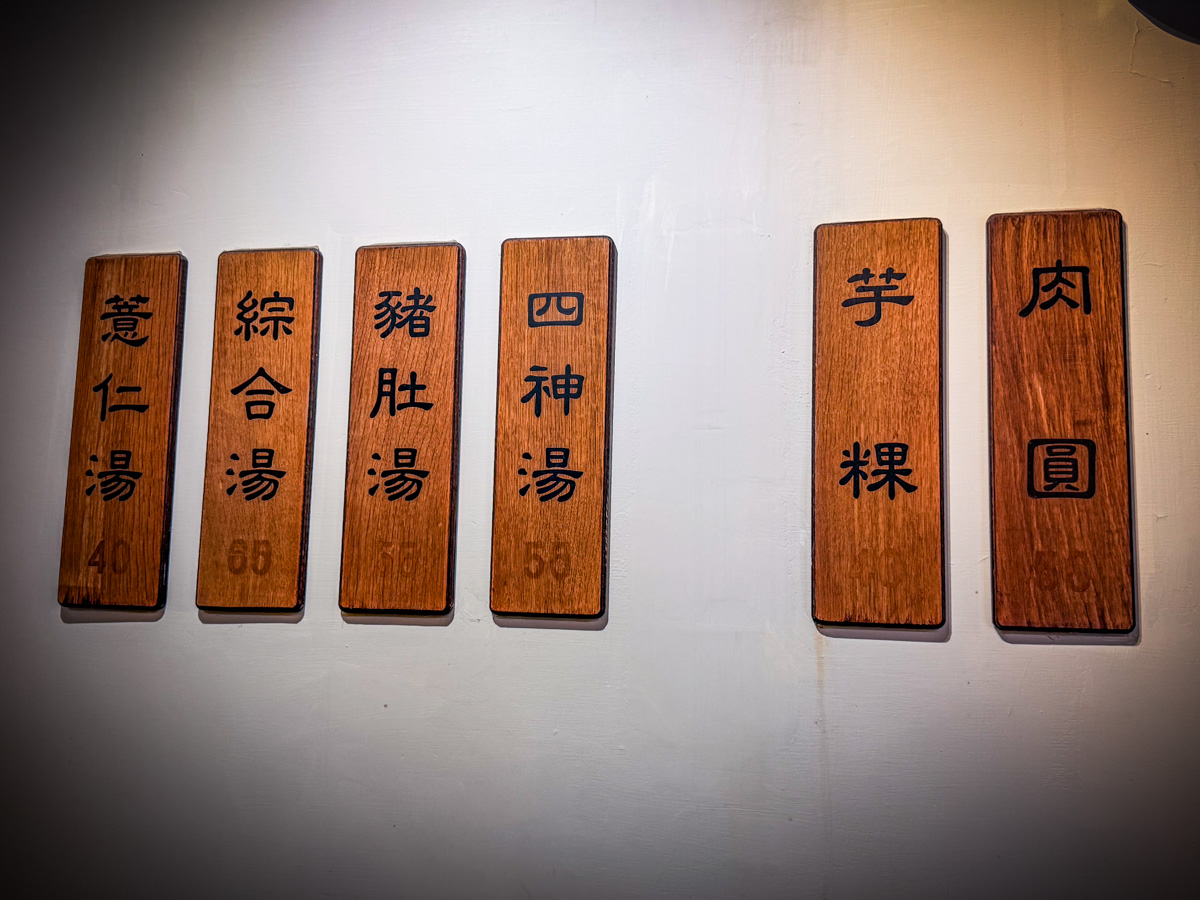 肉圓
芋粿
40
四神湯
55
豬肚湯
55
綜合湯
65
薏仁湯
40